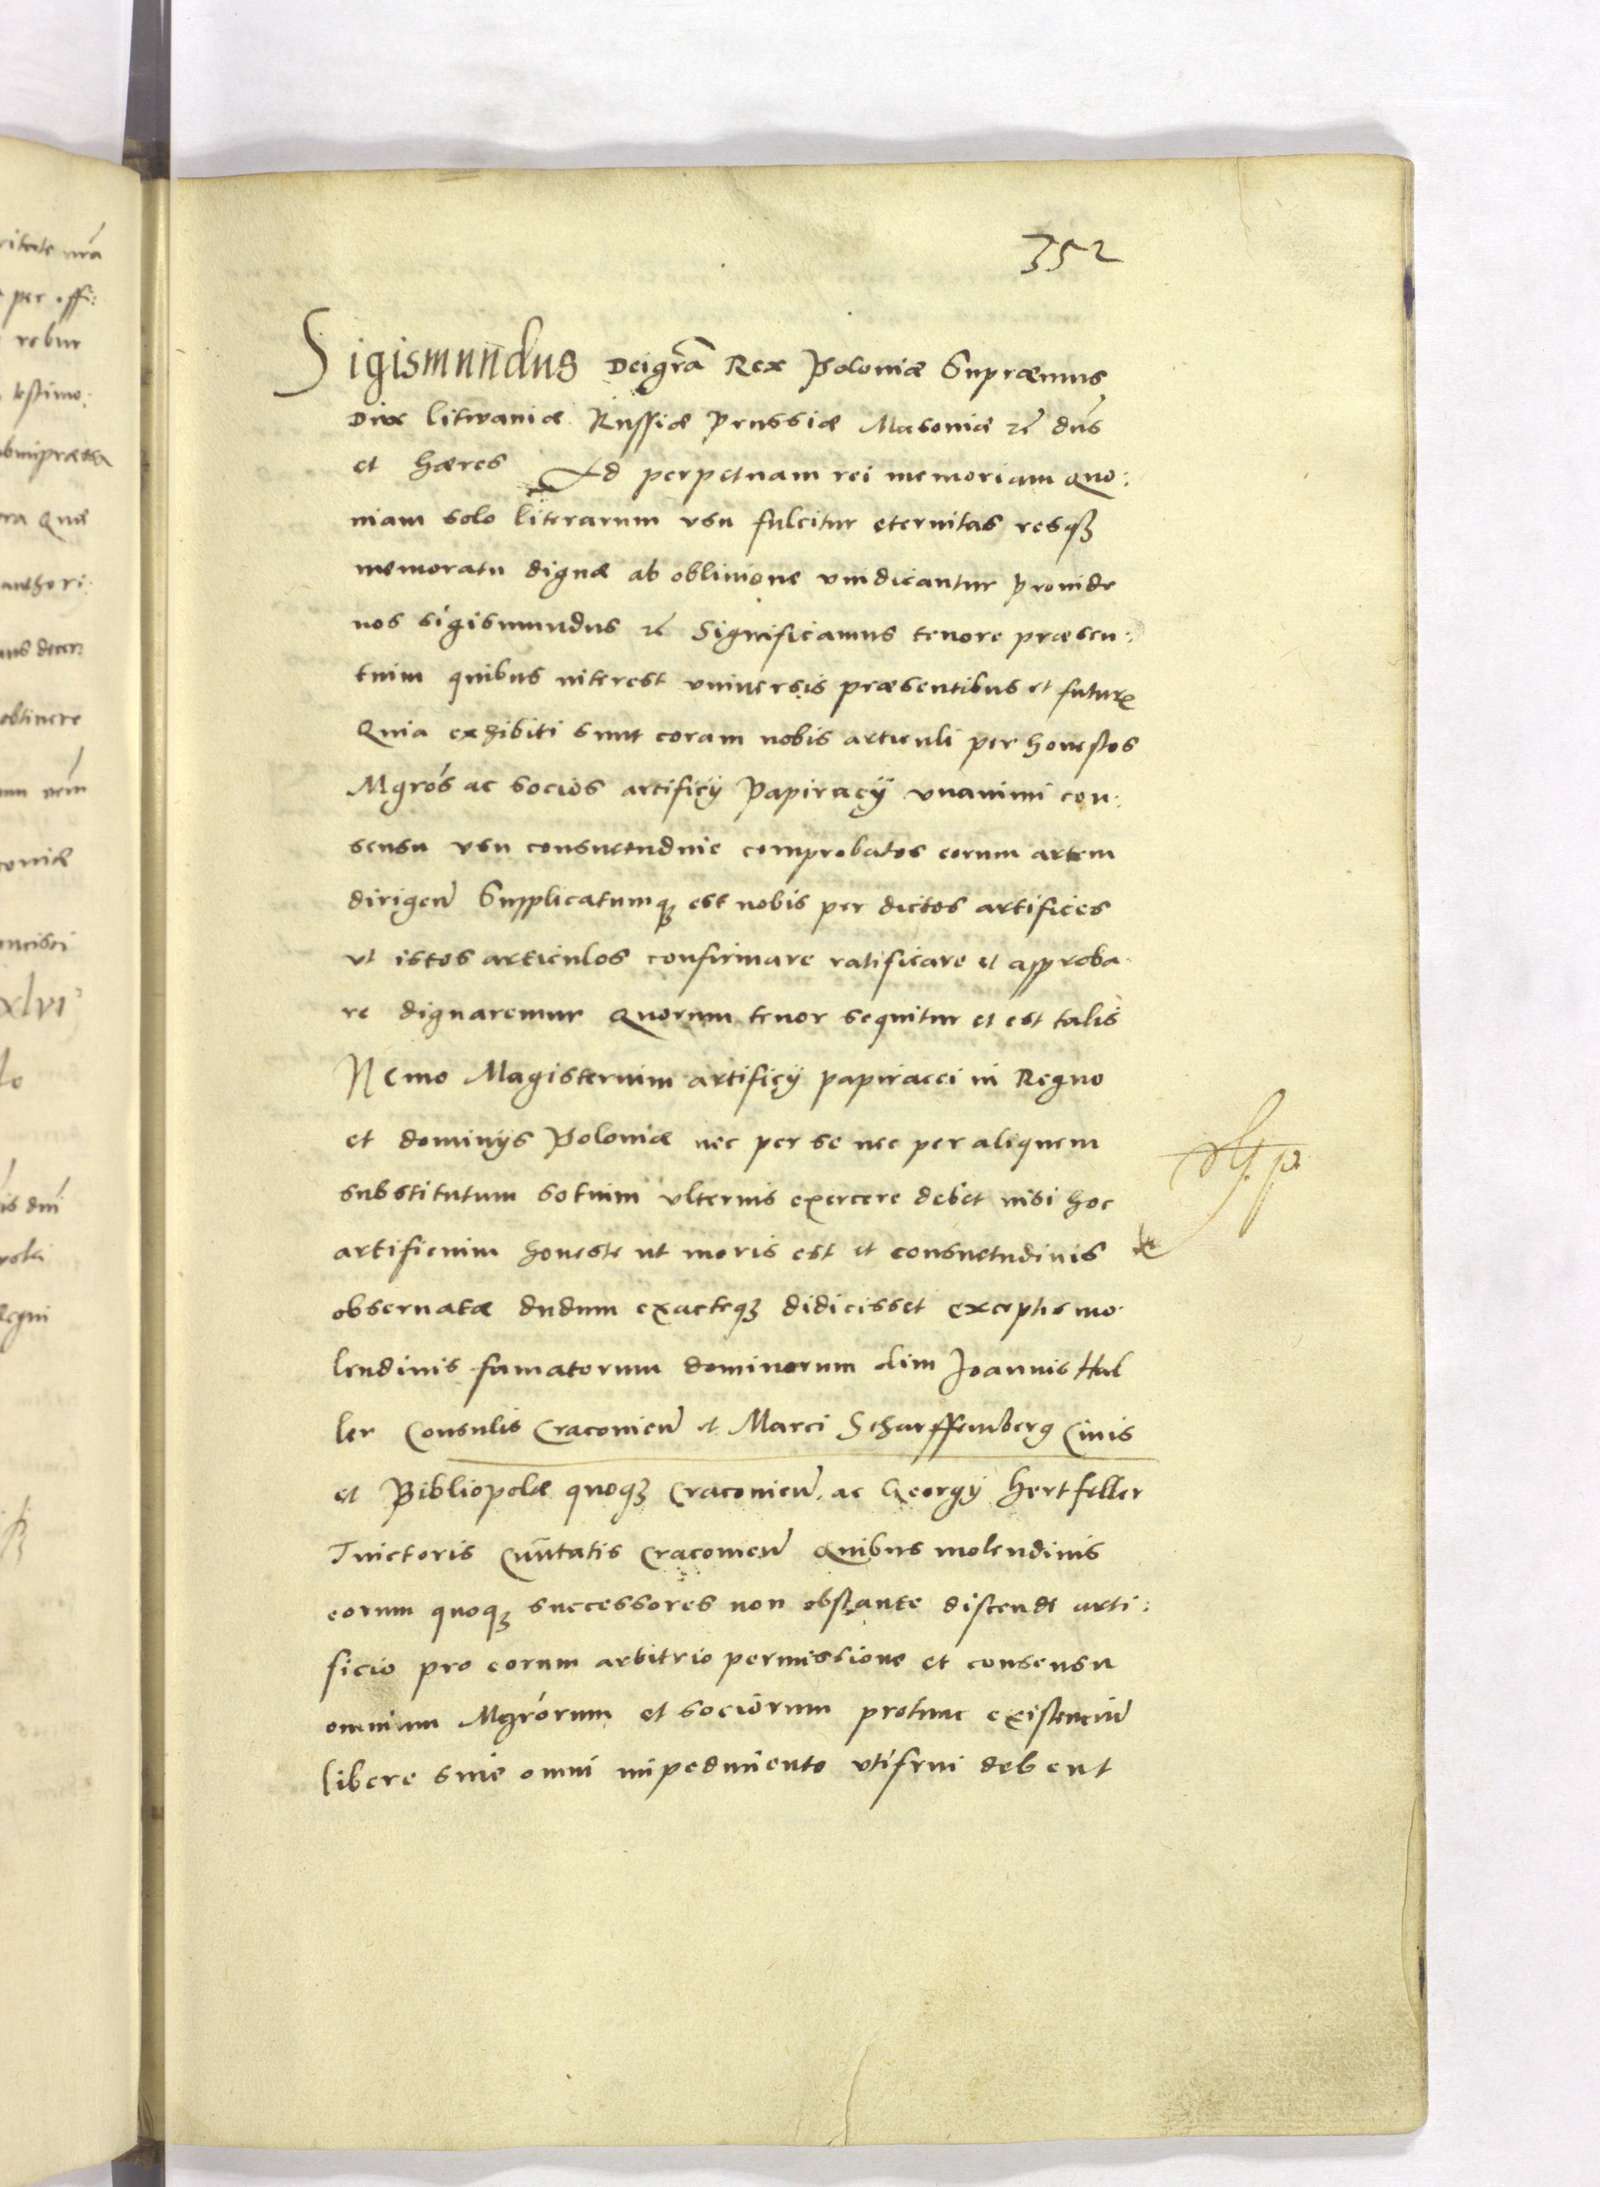 352
Sigismundus Dei grã Rex Poloniæ Supræmus
Dux Litwaniæ Russiæ Prussiæ Masoviæ zc̃ dñs
et Hæres Ad perpetuam rei memoriam Quo:
niam solo literarum vsu fulcitur eternitas resqȝ
memoratu dignæ ab oblivione vindicantur Proinde
nos Sigismundus zc̃ Significamus tenore præsen:
tium quibus interest vniversis præsentibus et futurꝭ
Quia exhibiti sunt coram nobis articuli per honestos
Mgr̃os ac socios artificÿ Papiracÿ vnanimi con:
sensu vsu consuetudine comprobatos eorum artem
dirigeñ Supplicatumqȝ est nobis per dictos artifices
vt istos articulos confirmare ratificare et approba
re dignaremur Quorum tenor sequitur et est talis
Nemo Magisterium artificÿ papiracei in Regno
et dominÿs Poloniæ nec per se nec per aliquem
substitutum sotium vlterius exercere debet nisi hoc
artificium honeste ut moris est et consuetudinis
observatæ dudum exacteqȝ didicisset exceptis mo
lendinis famatorum dominorum olim Joannis Hal
ler Consulis Cracovieñ et Marci Scharffenberg Civis
et Bibliopolæ quoqȝ Cracovieñ. ac Georgÿ Hertfeller
Tinctoris Civitatis Cracovieñ Quibus molendinis
eorum quoqȝ successores non obstante discende arti:
ficio pro eorum arbitrio permissione et consensu
omnium Mgr̃orum et sociorum protunc existenciũ
libere sine omni impedimento vtifrui debent